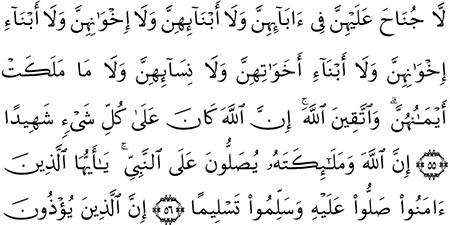 لَّا جُنَاحَ عَلَيْهِنَّ فِىٓ ءَابَآئِهِنَّ وَلَآ أَبْنَآئِهِنَّ وَلَآ إِخْوَٰنِهِنَّ وَلَآ أَبْنَآءِ
إِخْوَٰنِهِنَّ وَلَآ أَبْنَآءِ أَخَوَٰتِهِنَّ وَلَا نِسَآئِهِنَّ وَلَا مَا مَلَكَتْ
أَيْمَٰنُهُنَّ ۗ وَٱتَّقِينَ ٱللَّهَ ۚ إِنَّ ٱللَّهَ كَانَ عَلَىٰ كُلِّ شَىْءٍ شَهِيدًا
۝٥٥ إِنَّ ٱللَّهَ وَمَلَٰٓئِكَتَهُۥ يُصَلُّونَ عَلَى ٱلنَّبِىِّ ۚ يَٰٓأَيُّهَا ٱلَّذِينَ
ءَامَنُوا۟ صَلُّوا۟ عَلَيْهِ وَسَلِّمُوا۟ تَسْلِيمًا ۝٥٦ إِنَّ ٱلَّذِينَ يُؤْذُونَ